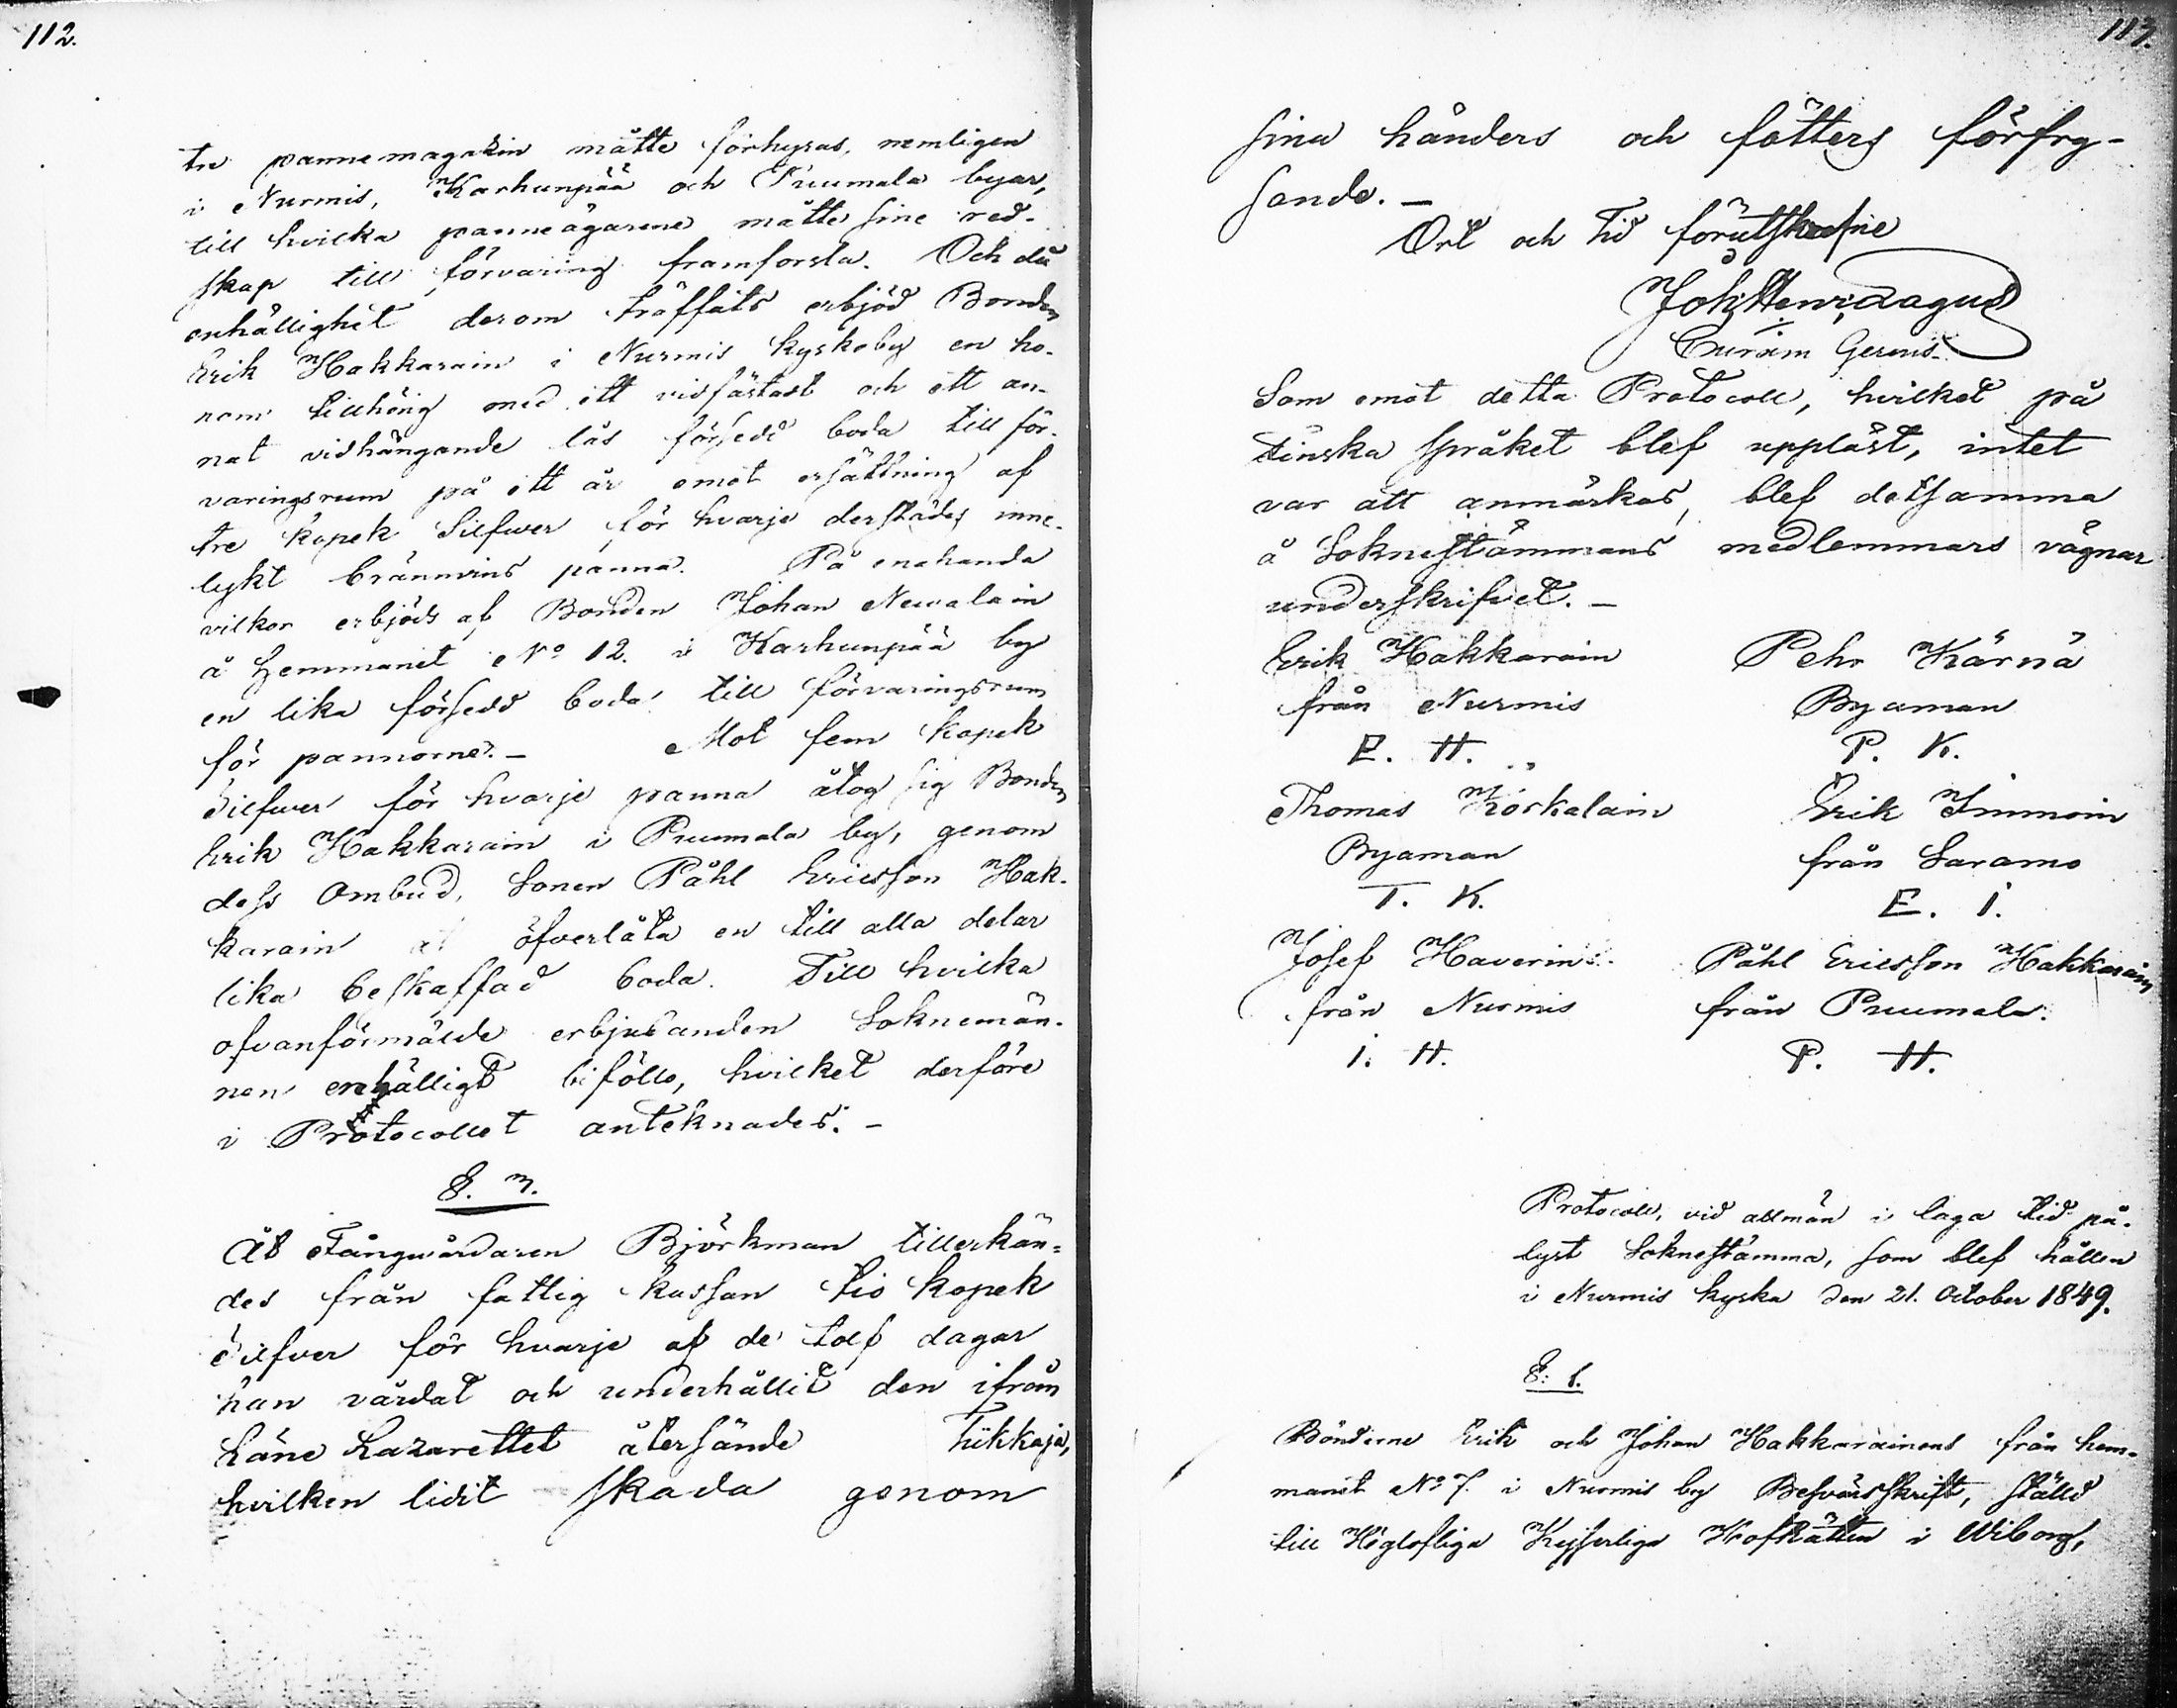 112.
tre pannemagazin måtte förhyras, nemligen
i Nurmis, Karhunpää och Puumala byar,
till hvilka panneägarene måtte sine red-
skap till förvaring framforsla. Och då
enhällighet derom träffats erbjöd Bonden
Erik Hakkarain i Nurmis kyrkoby en ho-
nom tillhörig med ett vidfästadt och ett an-
nat vidhängande lås försedd boda till för-
varingsrum på ett år emot ersättning af
tre kopek Silfver för hvarje derstädes inne-
lykt brännvins panna. På enahanda
vilkor erbjöds af Bonden Johan Nevalain
å hemmanet No 12. i Karhunpää by
en lika försedd boda till förvaringsrum
för pannorne. — Mot fem kopek
Silfver för hvarje panna åtog sig Bonden
Erik Hakkarain i Puumala by, genom
dess Ombud, Sonen Påhl Ericsson Hak-
karain at öfverlåta en till alla delar
lika beskaffad boda. Till hvilka
ofvanförmälde erbjudanden Soknemän-
nen enhälligt biföllo, hvilket derföre
i Protocollet anteknades. —
§. 3.
Åt Fångvårdaren Björkman tillerkän-
des från fattig kassan tio kopek
Silfver för hvarje af de tolf dagar
han vårdat och underhållit den ifrån
Läne Lazarettet återsände Tikkaja,
hvilken lidit skada genom
113.
sina händers och fötters förfry-
sande. —
Ort och tid förutskrefne
Joh Henr. Zagus
Curam Gerens.
Som emot detta Protocoll, hvilket på
finska språket blef uppläst, intet
var att anmärkas, blef detsamma
å Soknestämmans medlemmars vägnar
underskrifvet. —
Erik Hakkarain Pehr Kärnä
från Nurmis Byaman
E. H. P. K.
Thomas Körkalain Erik Immoin
Byaman från Saramo
T. K. E. I.
Josef Haverin Påhl Ericsson Hakkarain
från Nurmis från Puumala.
I. H. P. H.
Protocoll, vid allmän i laga tid på-
lyst Soknestämma, som blef hållen
i Nurmis kyrka den 21. October 1849.
§: 1.
Bönderne Erik och Johan Hakkarainens från hem-
manet No 7. i Nurmis by Besvärsskrift, ställd
till Höglofliga Kejserliga Hofrätten i Wiborg,